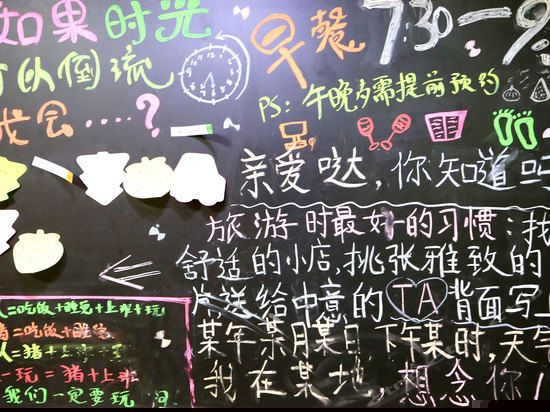 如果时光
可以倒流
我会……？
早餐
7:30—9
PS：午晚为需提前预约
亲爱哒，你知道吗
旅游时最好的习惯：找
舒适的小店，挑张雅致的
送给中意的TA背面写
某年某月某日下午某时，天气
我在某地，想念你！
人=吃饭+睡觉+上班+玩
猪=吃饭+睡觉
人=猪+上班+
玩=猪+上班
我们一定要玩